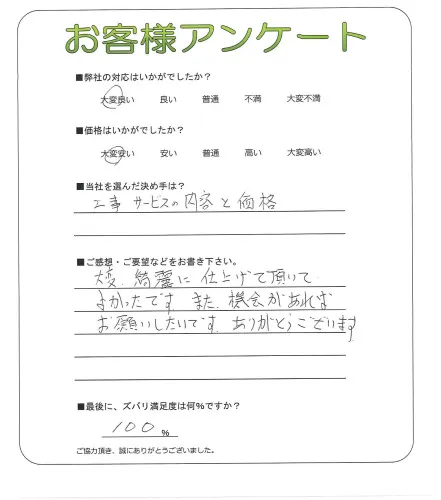 お客様アンケート
■弊社の対応はいかがでしたか？
大変良い 良い 普通 不満 大変不満
■価格はいかがでしたか？
大変安い 安い 普通 高い 大変高い
■当社を選んだ決め手は？
工事 サービスの内容と価格
■ご感想・ご要望などをお書き下さい。
大変、綺麗に仕上げて頂いて
よかったです。また、機会があれば
お願いしたいです。ありがとうございます
■最後に、ズバリ満足度は何%ですか？
100 %
ご協力頂き、誠にありがとうございました。